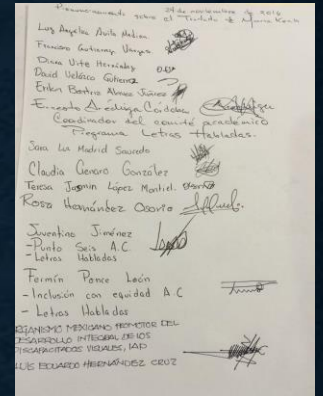 24 de noviembre de 2016
sobre el Tratado de
Luz Angelica Avila Medina
Francisco Gutierrez Vargas
Diana Uribe Hernández
David Velázco Gutierrez
Erika Beatriz Juárez
Ernesto Córdoba
Coordinador del comité académico
Programa Letras Habladas.
Sara Luz Madrid
Claudia Genaro González
Teresa Jasmin López Montiel.
Rosa Hernández Osorio
Juventino Jiménez
-Punto Seis A.C.
-Letras Habladas
Fermín Ponce León
-Inclusión con equidad A C
- Letras Habladas
ORGANISMO MEXICANO PROMOTOR DEL
DESARROLLO INTEGRAL DE LOS
DISCAPACITADOS VISUALES, IAP
LUIS EDUARDO HERNÁNDEZ CRUZ